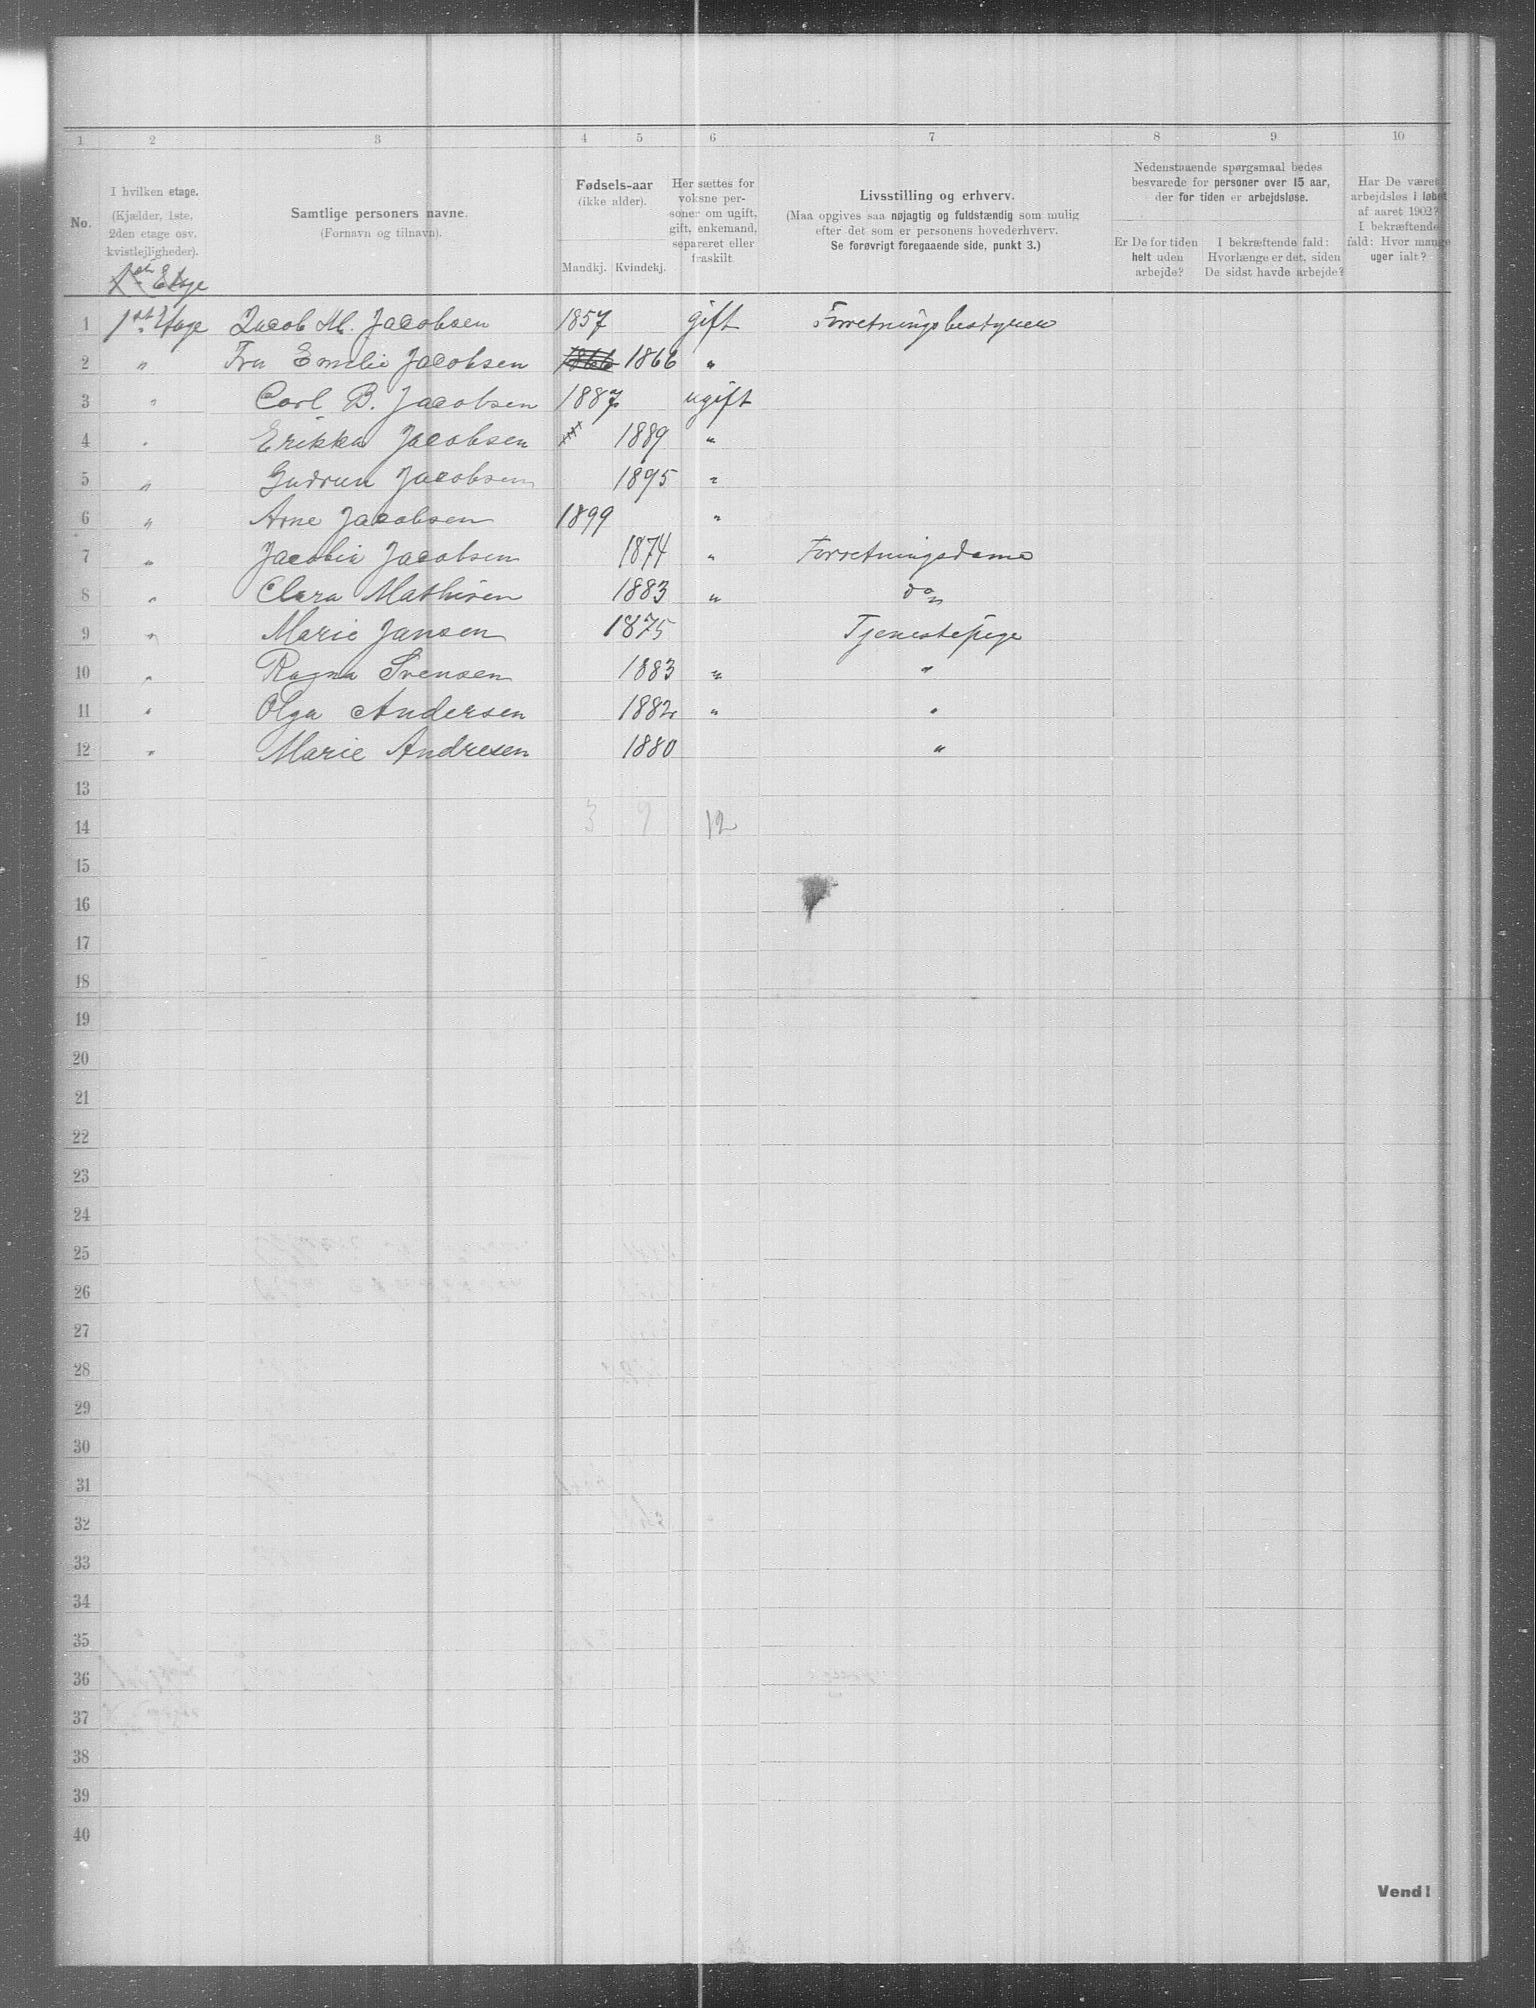 1 2 3 4 5 6 7 8 9 10
No.
I hvilken etage.
(Kjælder, 1ste,
2den etage osv.
kvistlejligheder).
Samtlige personers navne.
(Fornavn og tilnavn).
Fødsels-aar
(ikke alder).
Mandkj. Kvindekj.
Her sættes for
voksne per-
soner om ugift,
gift, enkemand,
separeret eller
fraskilt.
Livsstilling og erhverv.
(Maa opgives saa nøjagtig og fuldstændig som mulig
efter det som er personens hovederhverv.
Se forøvrigt foregaaende side, punkt 3.)
Nedenstaaende spørgsmaal bedes
besvarede for personer over 15 aar,
der for tiden er arbejdsløse.
Er De for tiden
helt uden
arbejde?
I bekræftende fald:
Hvorlænge er det, siden
De sidst havde arbejde?
Har De været
arbejdsløs i løbet
af aaret 1902?
I bekræftende
fald: Hvor mange
uger ialt?
1st Etage
1 1st Etage Jacob M. Jacobsen 1857 gift Forretningsbestyrer
2 " Fru Emilie Jacobsen 1866 1866 "
3 " Carl B. Jacobsen 1887 ugift
4 " Erikka Jacobsen 1889 "
5 " Gudrun Jacobsen 1895 "
6 " Arne Jacobsen 1899 "
7 " Jacobia Jacobsen 1874 " Forretningsdame
8 " Clara Mathisen 1883 " do
9 " Marie Jansen 1875 Tjenestepige
10 " Ragna Svensen 1883 " "
11 " Olga Andersen 1882 " "
12 " Marie Andresen 1880 "
13
14 3 9 12
15
16
17
18
19
20
21
22
23
24
25
26
27
28
29
30
31
32
33
34
35
36
37
38
39
40
Vend!